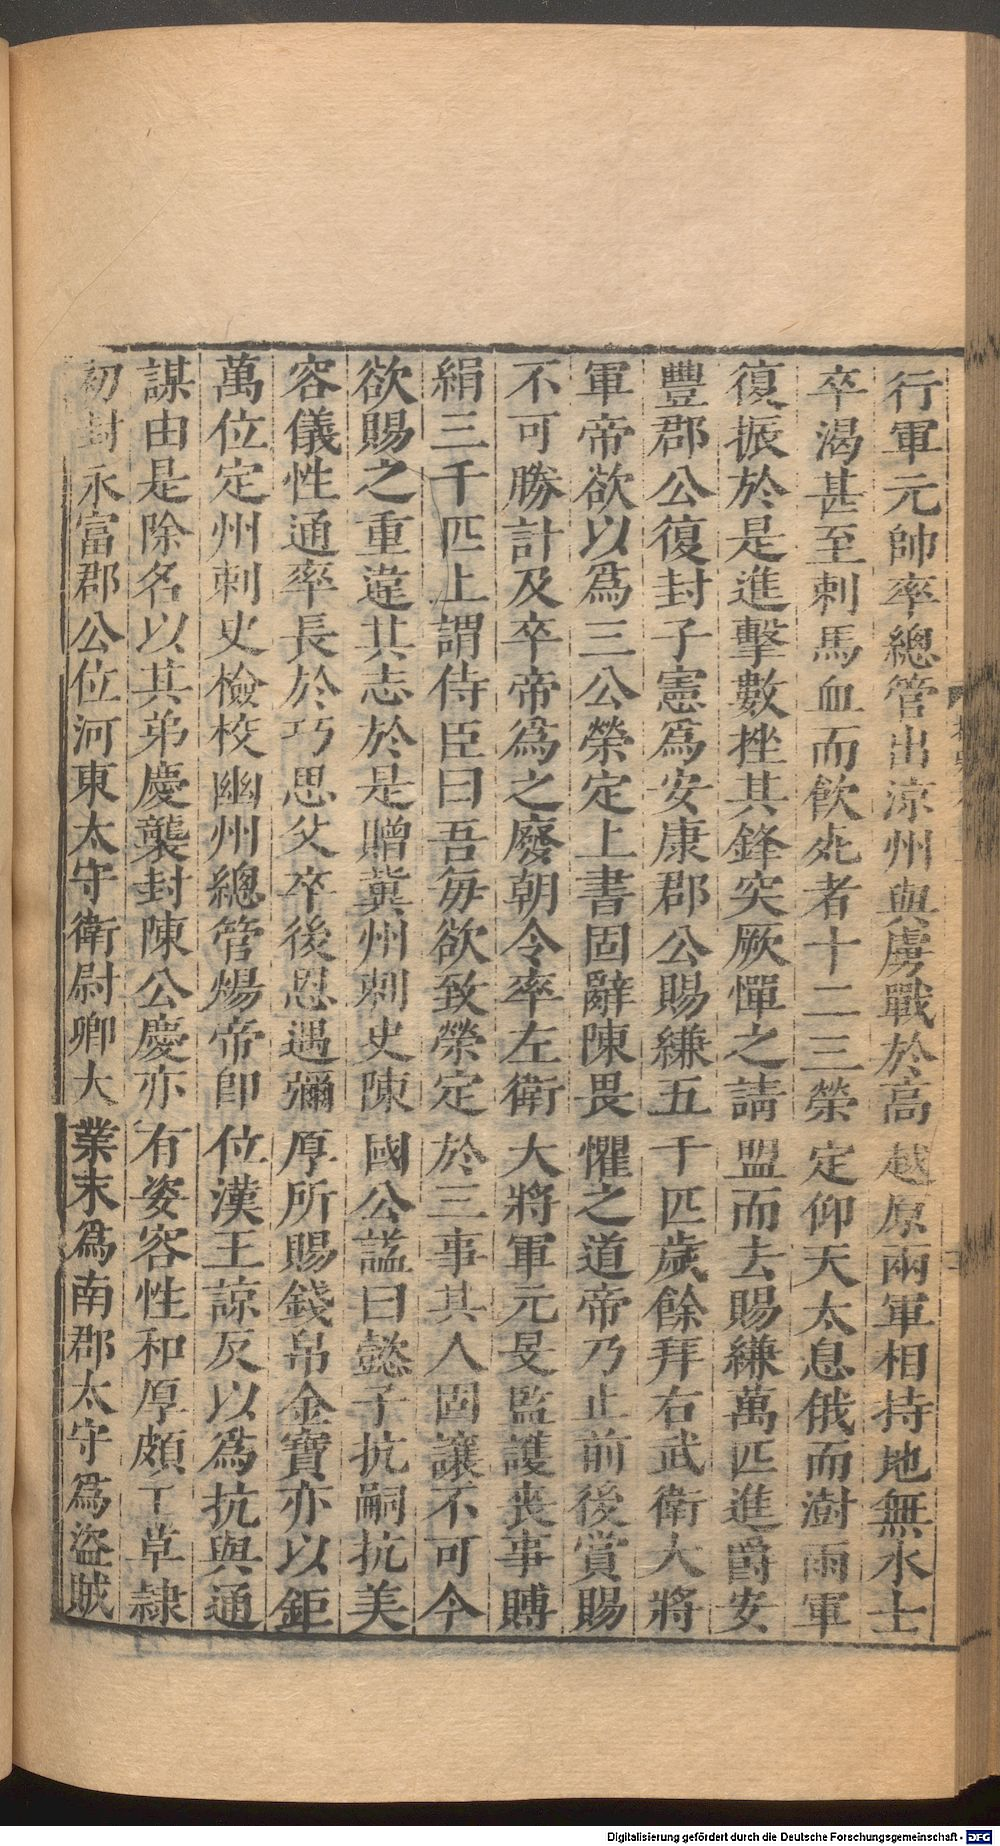 行軍元帥率總管出涼州與虜戰於高越原兩軍相持地無水士
卒渴甚至刺馬血而飲死者十二三榮定仰天太息俄而澍雨軍
復振於是進擊數挫其鋒突厥憚之請盟而去賜縑萬匹進爵安
豐郡公復封子憲為安康郡公賜縑五千匹歲餘拜右武衛大將
軍帝欲以為三公榮定上書固辭陳畏懼之道帝乃止前後賞賜
不可勝計及卒帝為之廢朝令率左衛大將軍元旻監護喪事賻
絹三千匹上謂侍臣曰吾每欲致榮定於三事其人固讓不可今
欲賜之重違其志於是贈冀州刺史陳國公諡曰懿子抗嗣抗美
容儀性通率長於巧思父卒後恩遇彌厚所賜錢帛金寶亦以鉅
萬位定州刺史檢校幽州總管煬帝即位漢王諒反以為抗與通
謀由是除名以其弟慶襲封陳公慶亦有姿容性和厚頗工草隸
初封永富郡公位河東太守衛尉卿大業末為南郡太守為盜賊
Digitalisierung gefördert durch die Deutsche Forschungsgemeinschaft - DFG